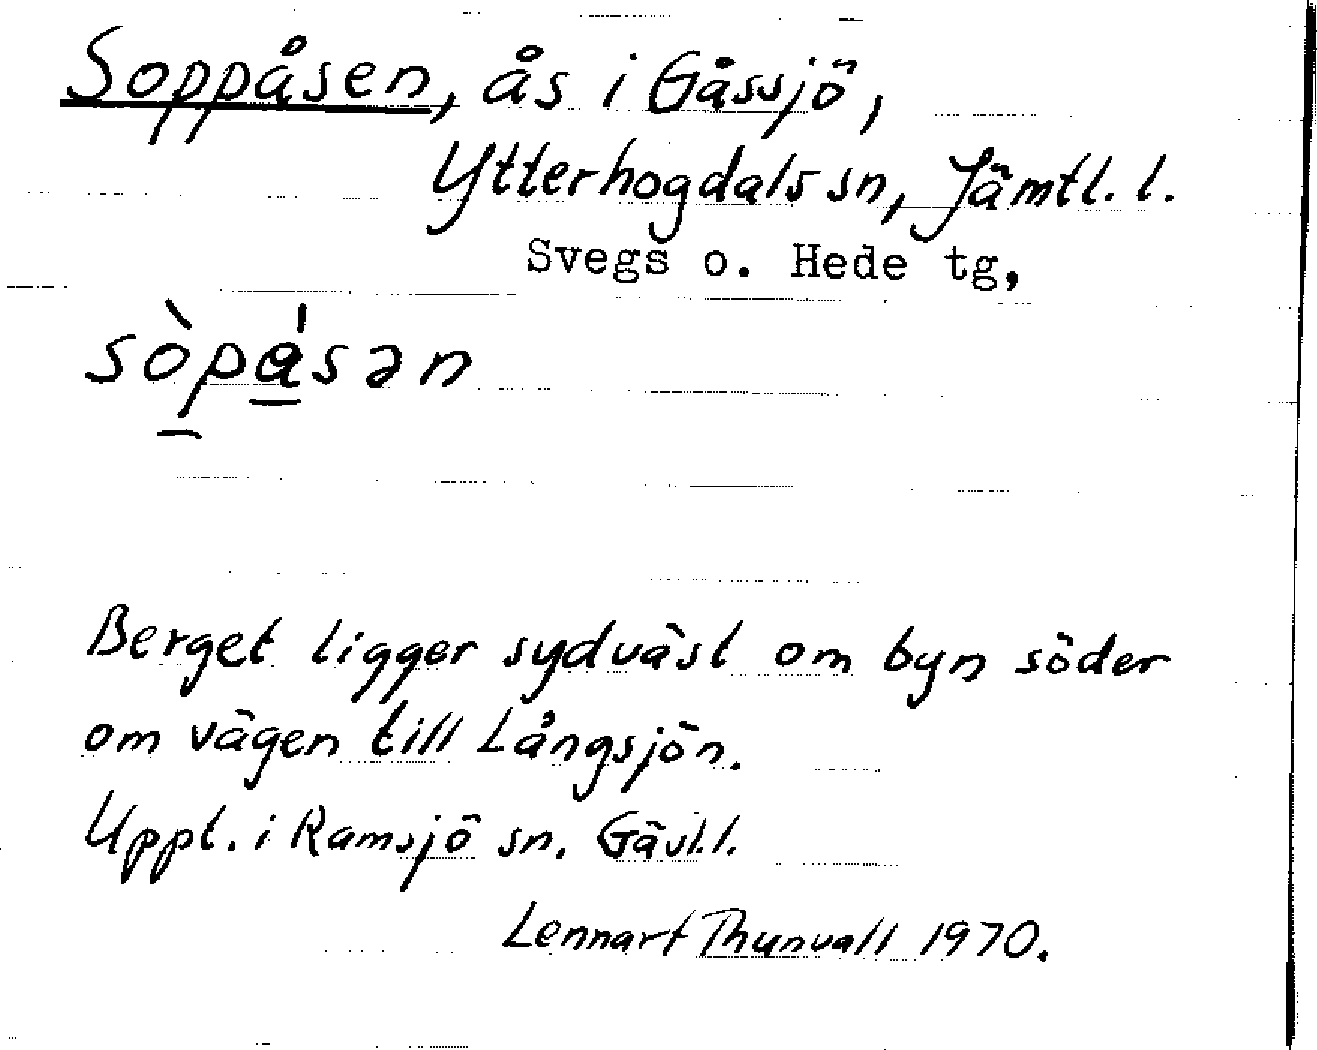 Soppåsen, ås i Gåssjö,
Ytterhogdals sn, Jämtl. l.
Svegs o. Hede tg,
sòp̲á̲sən
Berget ligger sydväst om byn söder
om vägen till Långsjön.
Uppt. i Ramsjö sn. Gävl.l.
Lennart Thunvall 1970.